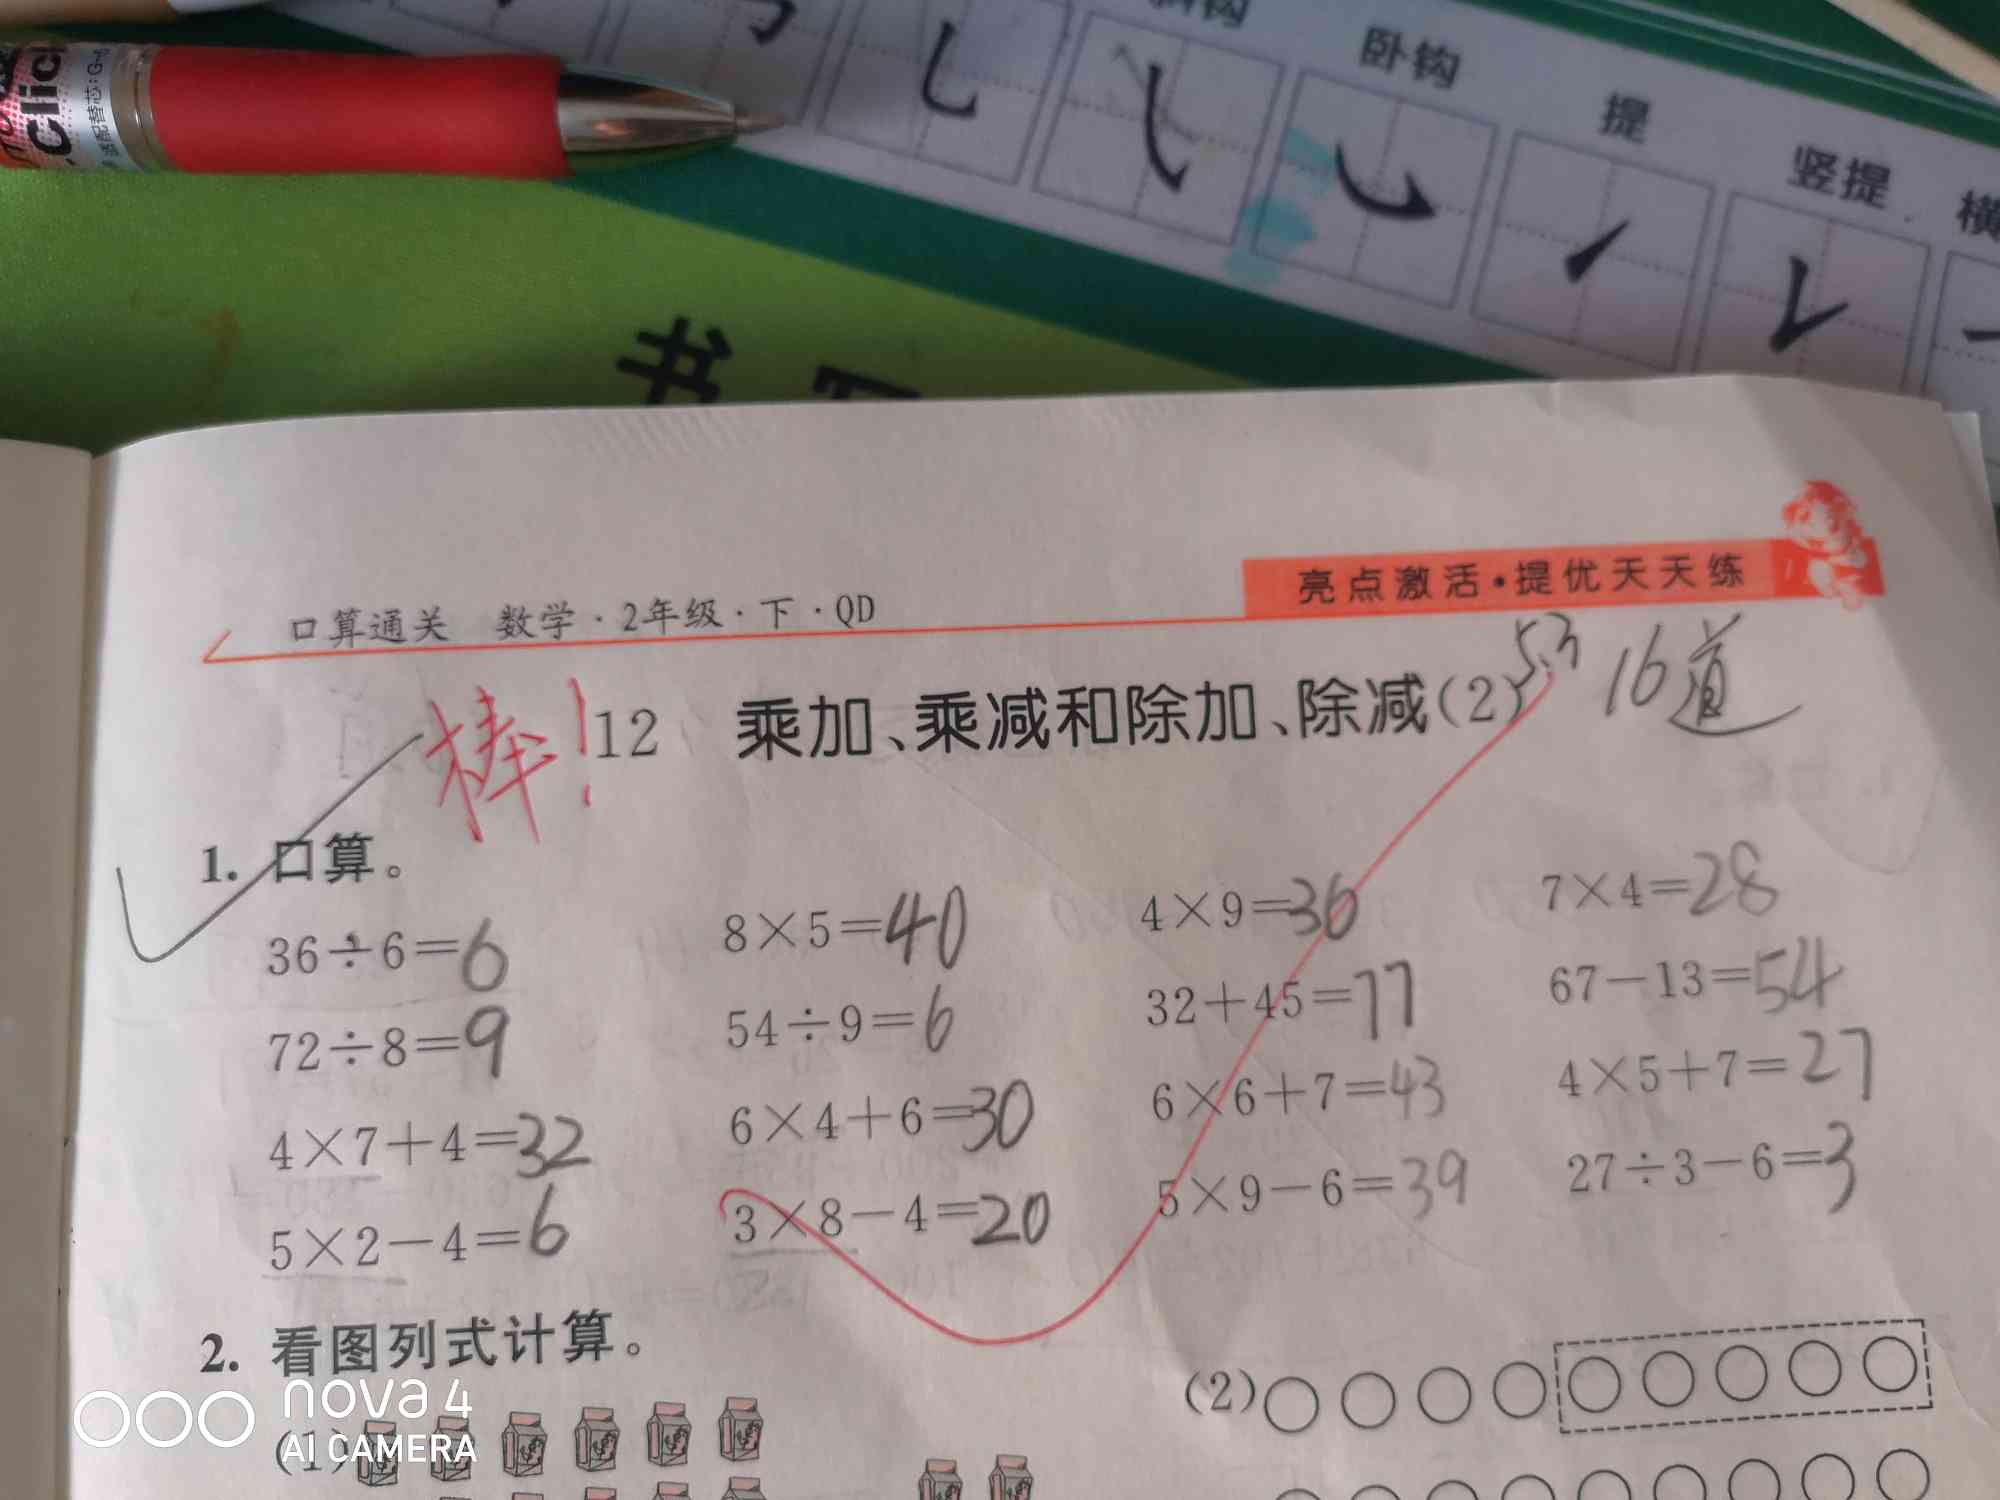 Clic
替配替芯:G-
斜钩
卧钩
提
竖提
横
书
口算通关 数学·2年级·下·QD
亮点激活·提优天天练
棒!
12 乘加、乘减和除加、除减(2)
5.3 16道
1. 口算。
36÷6=6 8×5=40 4×9=36 7×4=28
72÷8=9 54÷9=6 32+45=77 67-13=54
4×7+4=32 6×4+6=30 6×6+7=43 4×5+7=27
5×2-4=6 3×8-4=20 5×9-6=39 27÷3-6=3
2. 看图列式计算。
(1)
(2)
nova 4
AI CAMERA